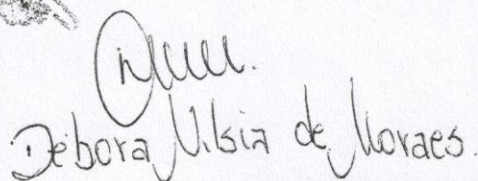 Débora Nilsia de Moraes.